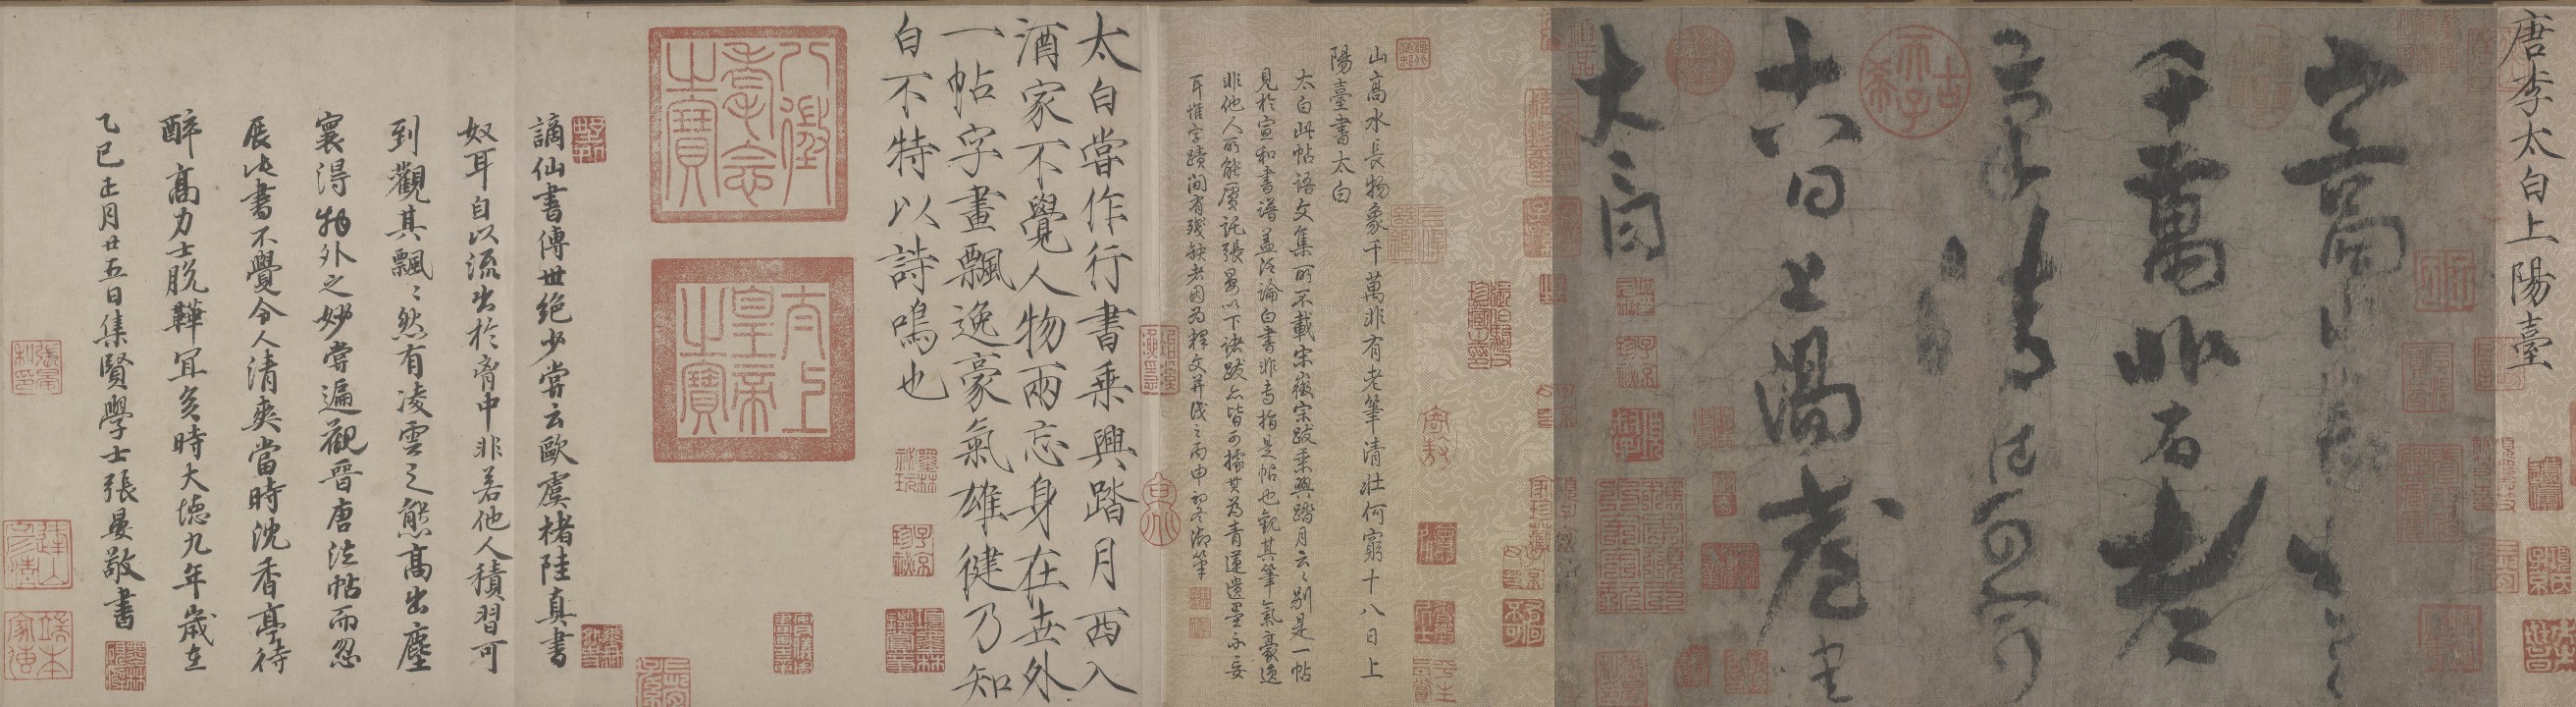 唐李太白上陽臺
山高水長物象
千萬非有老
筆清壯可窮
十八日上陽臺書
太白
古希天子
山高水長物象千萬非有老筆清壯何窮十八日上
陽臺書太白
太白此帖語文集所不載宋徽宗跋乘興踏月云云別是一帖
見於宣和書譜蓋泛論白書非專指是帖也觀其筆氣豪逸
非他人所能贗託張晏以下諸跋亦皆可據其為青蓮遺墨不妄
耳惟字蹟間有殘缺者因為釋文并識之丙申初冬御筆
太白嘗作行書乘興踏月西入
酒家不覺人物兩忘身在世外
一帖字畫飄逸豪氣雄健乃知
白不特以詩鳴也
八徵耄念之寶
太上皇帝之寶
謫仙書傳世絕少嘗云歐虞褚陸真書
奴耳自以流出於胷中非若他人積習可
到觀其飄〻然有凌雲之態高出塵
寰得物外之妙嘗遍觀晉唐法帖而忽
展此書不覺令人清爽當時沈香亭待
醉高力士脫鞾宜矣時大德九年歲在
乙巳正月廿五日集賢學士張晏敬書